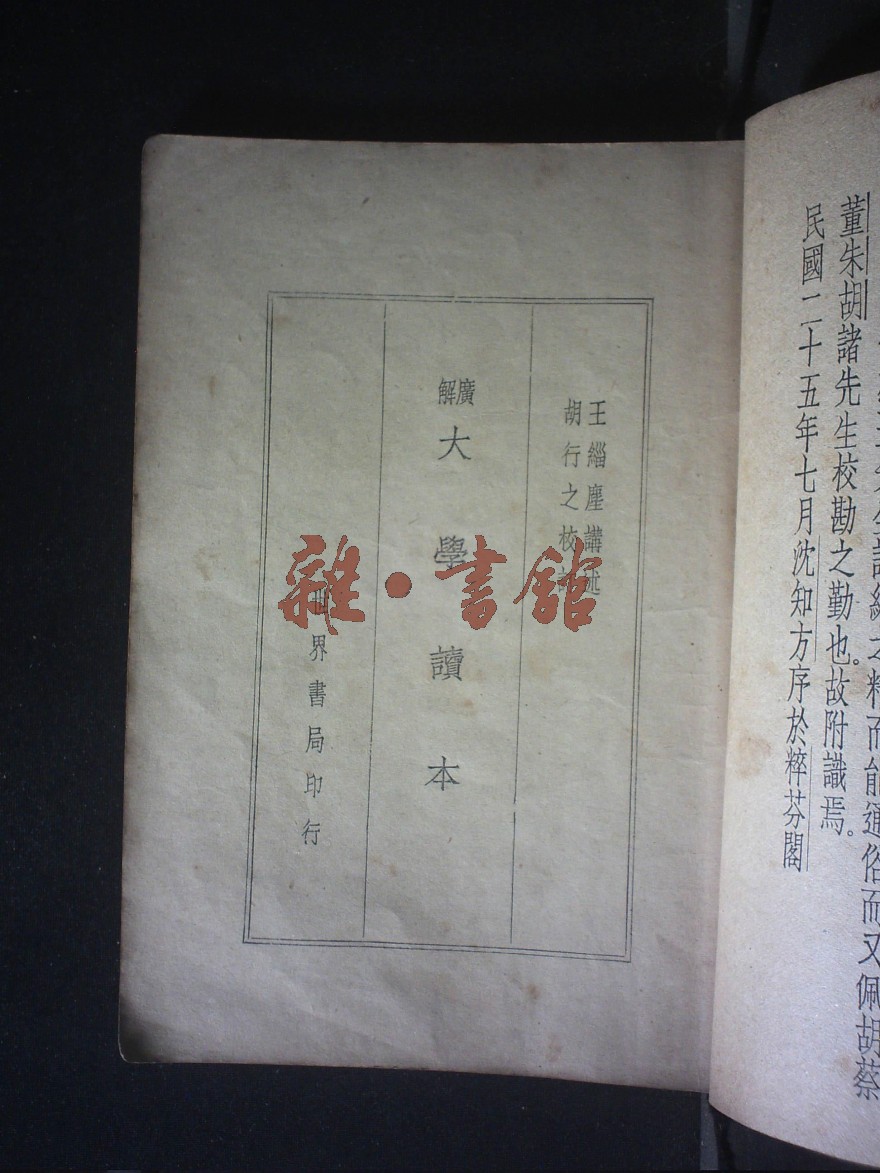 而能通俗而又佩胡蔡
董朱胡諸先生校勘之勤也。故附識焉。
民國二十五年七月沈知方序於粹芬閣
王緇塵講述
胡行之校
廣解
大學讀本
世界書局印行
雜·書館